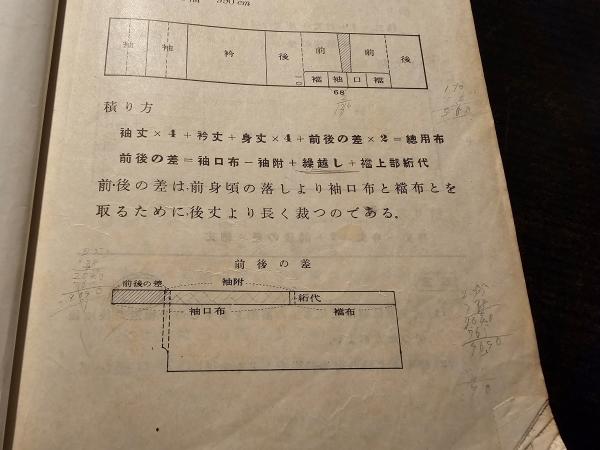 袖
袖
衿
後
前
前
後
襠
袖
口
襠
68
積り方
袖丈×4+衿丈+身丈×4+前後の差×2=總用布
前後の差=袖口布−袖附+繰越し+襠上部絎代
前後の差は前身頃の落しより袖口布と襠布とを
取るために後丈より長く裁つのである。
前後の差
前後の差
袖附
絎代
袖口布
襠布